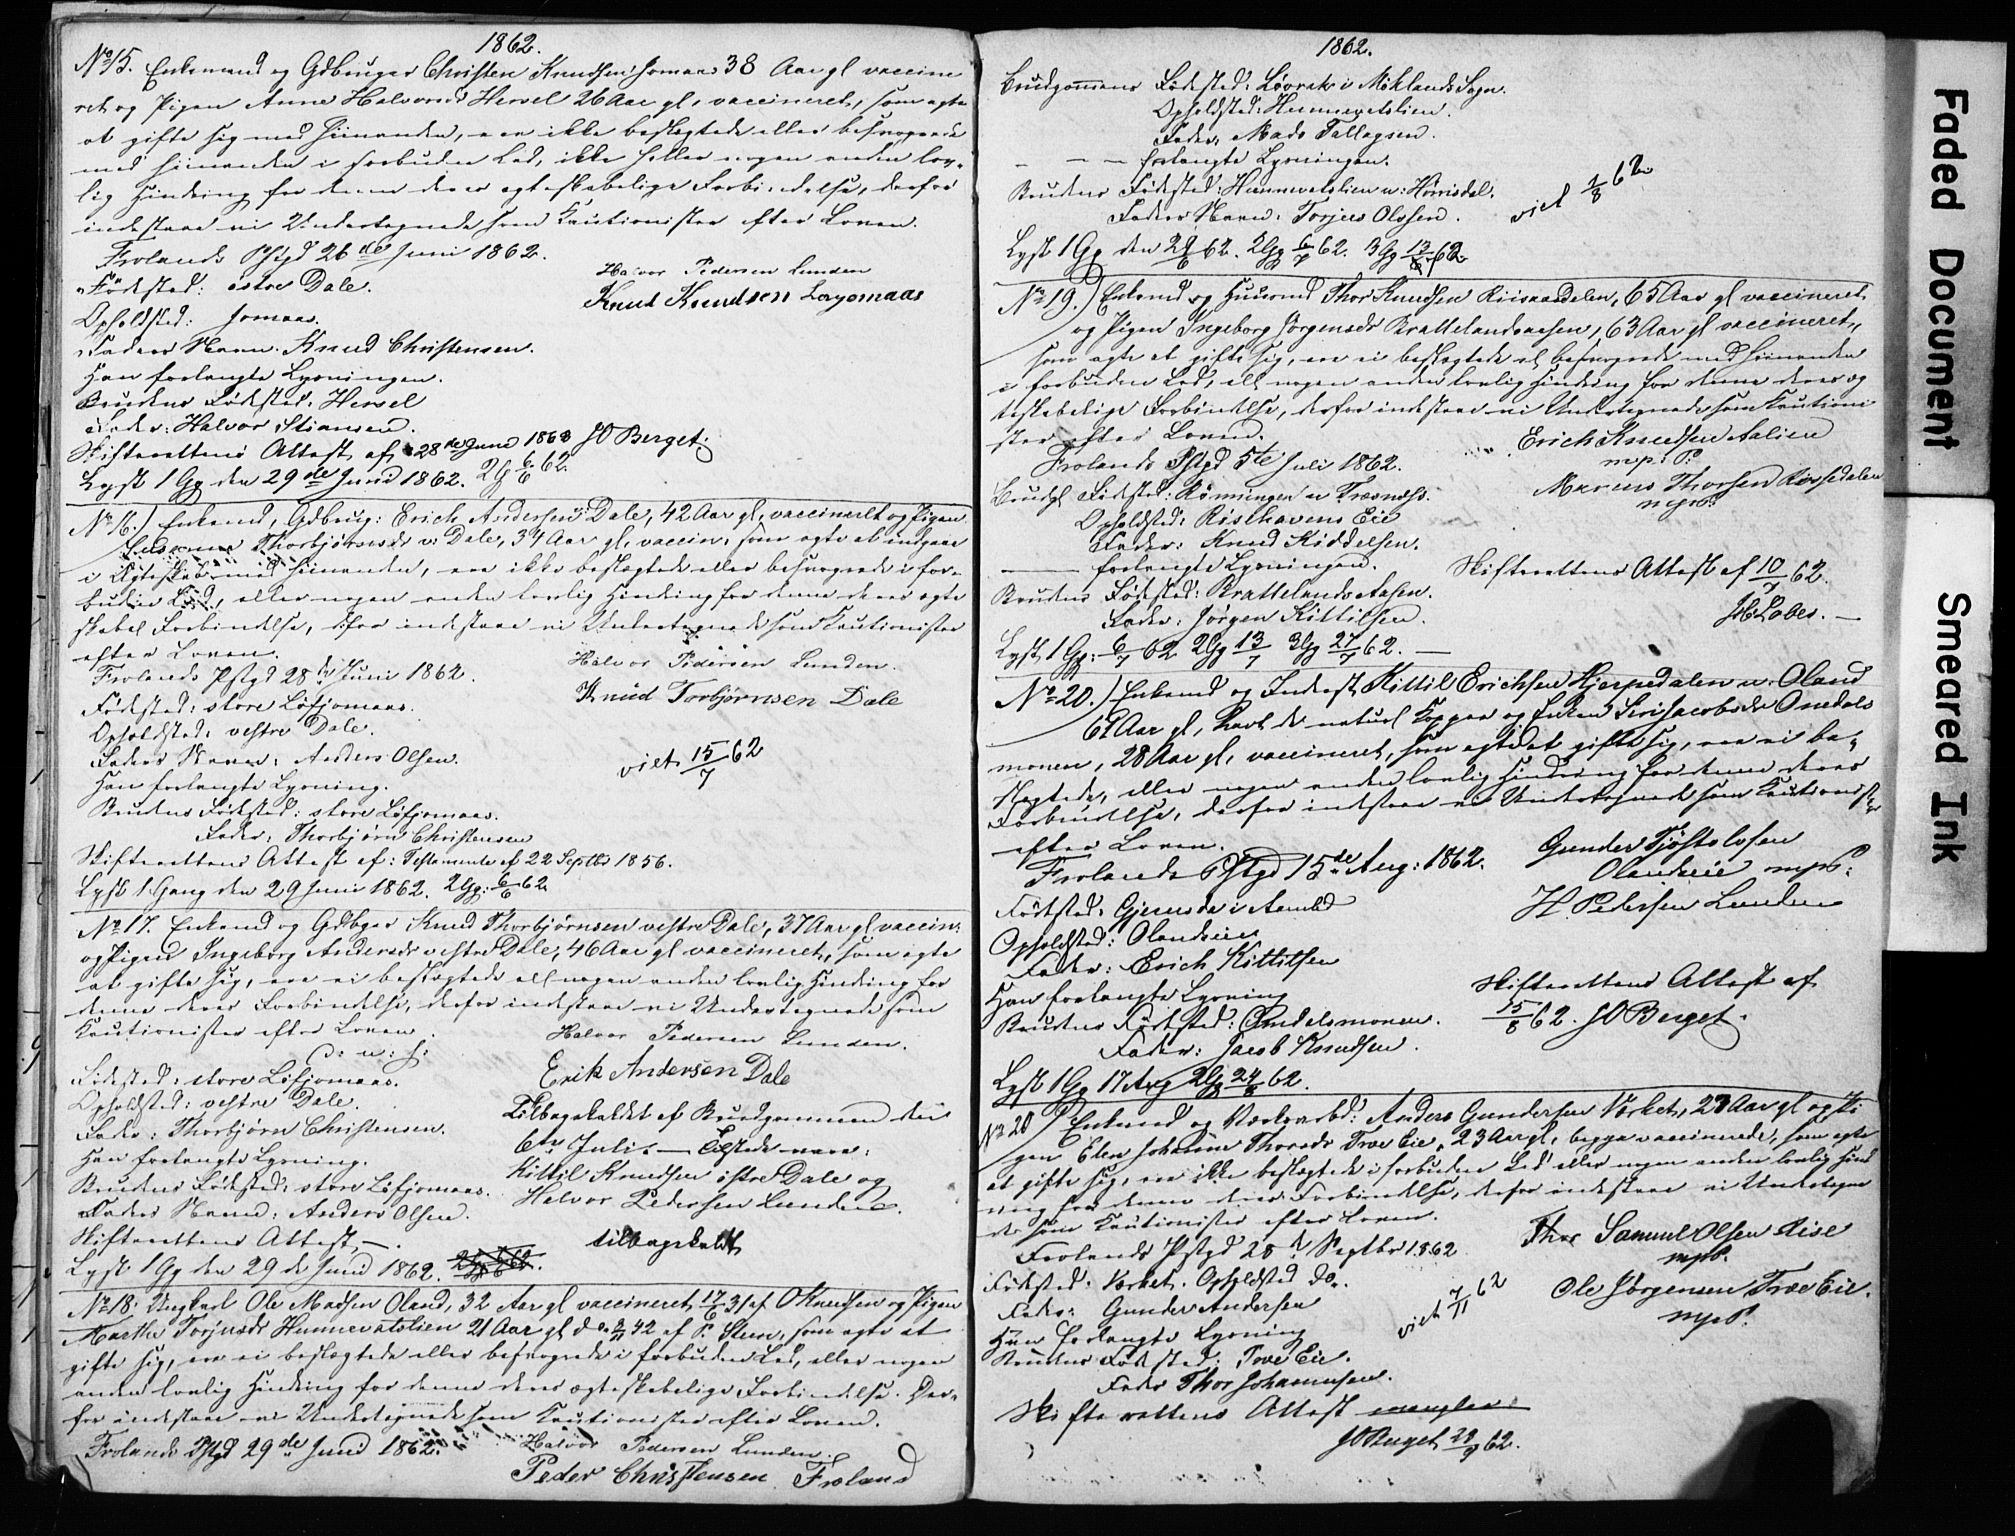 1862.
No 15. Enkemand og Gdbruger Christen Knudsen Jomaas 38 Aar gl vaccine
ret og Pigen Anne Halvorsd Hersel 26 Aar gl, vaccineret, som agte
at gifte sig med hinanden, ere ikke beslægtede eller besvogrede
med hinanden i forbudne Led, ikke heller nogen anden lov-
lig Hindring for denne deres ægteskabelige Forbindelse, derfor
indestaae vi Undertegnede som Kautionister efter Loven.
Frolands Pstgd 26de Juni 1862.
Halvor Pedersen Lunden
Knud Knudsen
Fødested: østre Dale.
Opholdsted: Jomaas.
Faders Navn: Knud Christensen.
Han forlangte Lysningen.
Brudens Fødested: Hersel
Fader: Halvor Stiansen.
Skifterettens Attest af 28de Juni 1862 JO Berget.
Lyst 1 Gg den 29de Juni 1862. 2 G 6/6 62.
No 16.) Enkemd, Gdbrug: Erich Andersen Dale, 42 Aar gl, vaccineret og Pigen
Thorbjørnsdr v: Dale, 34 Aar gl, vaccin: som agte at indgaae
i Ægteskab med hinanden, ere ikke beslægtede eller besvogrede i for-
budne Led, eller nogen anden lovlig Hindring for denne deres ægte
skabel Forbindelse, dfor indestaae vi Undertegnede som Kautionister
efter Loven.
Frolands Pstgd 28de Juni 1862.
Halvor Pedersen Lunden.
Knud Torbjørnsen Dale
Fødested: store Løfjomaas.
Opholdsted: vestre Dale.
Faders Navn: Anders Olsen.
Han forlangte Lysning.
viet 15/7 62
Brudens Fødested: store Løfjomaas.
Fader: Thorbjørn Christensen
Skifterettens Attest af: Testamente af 22 Septbr 1856.
Lyst 1 Gang den 29 Juni 1862. 2 Gg: 6/6 62
No 17. Enkemd og Gdbgr Knud Thorbjørnsen vestre Dale, 37 Aar gl vaccin:
og Pigen Ingeborg Andersdr vestre Dale, 46 Aar gl vaccineret, som agte
at gifte sig, ere ei beslægtede ell nogen anden lovlig Hindring for
denne deres Forbindelse, derfor indestaae vi Undertegnede som
Kautionister efter Loven.
Halvor Pedersen Lunden.
Erik Andersen Dale
Fødested: store Løfjomaas.
Opholdsted: vestre Dale.
Fader: Thorbjørn Christensen.
Han forlangte Lysning.
Brudens Fødested: store Løfjomaas.
Faders Navn: Anders Olsen.
Skifterettens Attest, —.
Lyst 1 Gg den 29 de Juni 1862.
Tilbagekaldt af Brudgommen den
6te Juli. — Tilstede vare:
Kittil Knudsen østre Dale og
Halvor Pedersen Lunden.
tilbagekaldt
No 18: Ungkarl Ole Madsen Oland, 32 Aar gl vaccineret 17/6 31 af O Knudsen og Pigen
Marthe Torjusdr Hunnevatslien 21 Aar gl do 42 af P. Steen, som agte at
gifte sig, ere ei beslægtede eller besvogrede i forbuden Led, eller nogen
anden lovlig Hindring for denne deres ægteskabelige Forbindelse. Der-
for indestaae vi Undertegnede som Kautionister efter Loven.
Frolands Pstgd 29de Juni 1862.
Halvor Pedersen Lunden.
Peder Christensen Froland
1862.
Brudgommens Fødested: Løvrak i Mÿklands Sogn.
Opholdsted: Hunnevatslien.
Fader: Mads Tallagsen.
— — — forlangte Lysningen.
Brudens Fødested: Hunnevatslien u: Hørrisdal.
Faders Navn: Torjus Olssen.
viet 1/8 62
Lyst 1 Gg den 29/6 62. 2 Gg 6/7 62. 3 Gg 13/7 62
No 19.) Enkemd og Huusmd Thor Knudsen Riisaasdalen, 65 Aar gl vaccineret
og Pigen Ingeborg Jørgensdr Brattelandsaasen, 63 Aar gl vaccineret,
som agte at gifte sig, ere ei beslægtede el besvogrede med hinanden
i forbuden Led, ell nogen anden lovlig Hindring for denne deres æg
teskabelige Forbindelse, derfor indestaae vi Undertegnede som Kautioni
ster efter Loven.
Frolands Pstgd 5te Juli 1862.
Erich Knudsen Aalien
m.p.P.
Marcus Thorsen Riisedalen
mp.P.
Brudgs Fødested: Rønningen u Træsnæss.
Opholdsted: Risthavens Eie
Fader: Knud Kiddelsen.
—— forlangte Lysningen.
Skifterettens Attest af 10/7 62.
Brudens Fødested: Brattelands Aasen.
Fader: Jørgen Kittilsen.
Lyst 1 Gg: 6/7 62 2 Gg 13/7 3 Gg 27/7 62. —
No 20.) Enkemd og Inderst Kittil Erichsen Hjerpedalen u: Oland
61 Aar gl, havt de naturl Kopper og Enken Siri Jacobsdr Omdals
monen, 28 Aar gl, vaccineret, som agte at gifte sig, ere ei be-
slegtede, eller nogen anden lovlig Hindring for denne deres
Forbindelse, derfor indestaae vi Undertegnede som Kautionister
efter Loven.
Frolands Pstgd 15de Aug: 1862.
Gunder Tjøstolvsen
Olandseie mpP:
H. Pedersen Lunden
Fødested: Gjerusda i Aamlid
Opholdsted: Olandseie
Fader: Erich Kittilsen
Han forlangte Lysning
Brudens Fødested: Omdalsmonen.
Fader: Jacob Knudsen.
Skifterettens Attest af
15/8 62. JO Berget.
Lyst 1 Gg 17 Aug 2 Gg 24/8 62.
No 20 Enkemd og Værksarbd: Anders Gundersen Værket, 27 Aar gl og Pi
gen Elen Johanne Thorsdr Træe Eie, 23 Aar gl, begge vaccinerede, som agte
at gifte sig, ere ikke beslægtede i forbuden Led eller nogen anden lovlig Hind
ring for denne deres Forbindelse, derfor indestaae vi Undertegne
de som Kautionister efter Loven.
Frolands Pstgd 28de Septbr 1862
Thor Samuel Olsen Rise
mpP.
Ole Jørgensen Træe Eie.
mp.P.
Fødested: Værket. Opholdsted do.
Fader: Gunder Andersen
Han forlangte Lysning
viet 7/11 62
Brudens Fødested: Træe Eie.
Fader Thor Johannesen.
Skifterettens Attest mangler.
JO Berget 29/9 62.
Faded Document
Smeared Ink